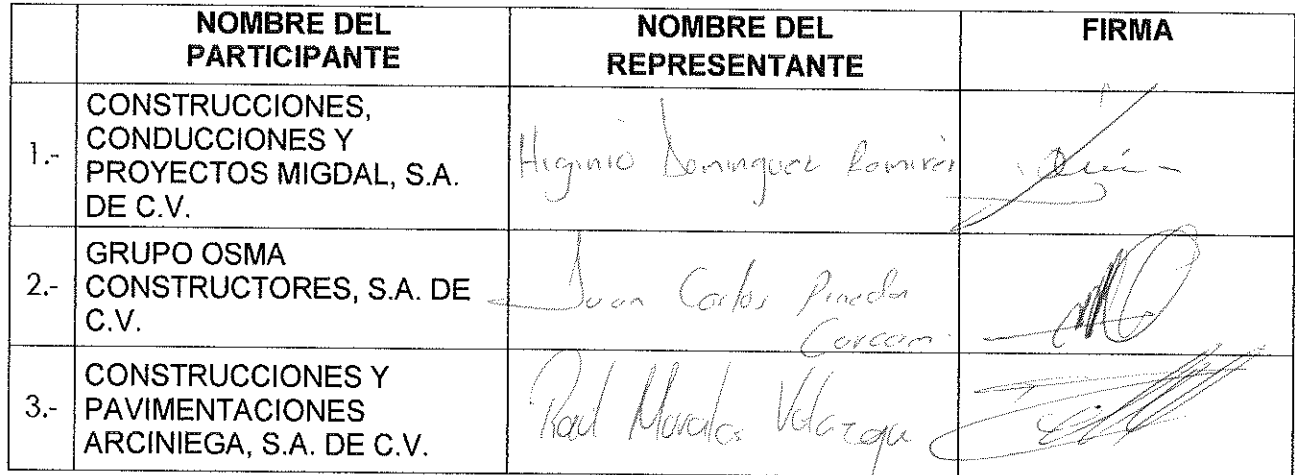 NOMBRE DEL PARTICIPANTE
NOMBRE DEL REPRESENTANTE
FIRMA
1.-
CONSTRUCCIONES,
CONDUCCIONES Y
PROYECTOS MIGDAL, S.A.
DE C.V.
Higinio Dominguez Ramirez
2.-
GRUPO OSMA
CONSTRUCTORES, S.A. DE
C.V.
Juan Carlos Pineda
3.-
CONSTRUCCIONES Y
PAVIMENTACIONES
ARCINIEGA, S.A. DE C.V.
Raul Morales